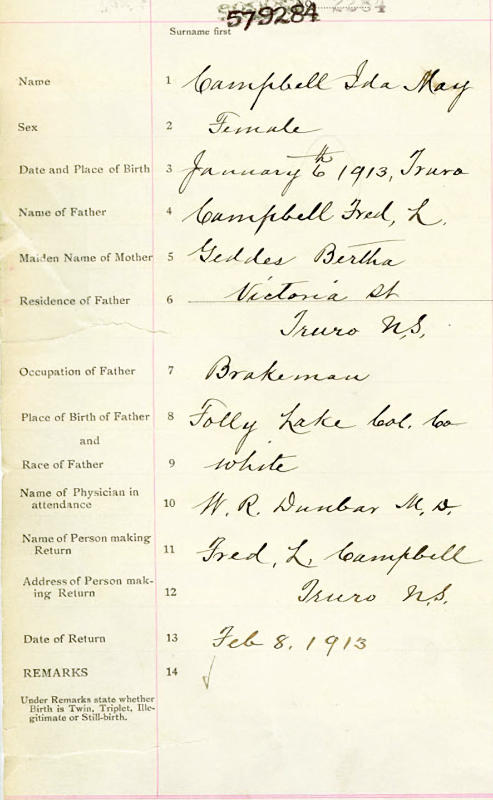 579284
Surname first
Name 1 Campbell Ida May
Sex 2 Female
Date and Place of Birth 3 January 6th 1913, Truro
Name of Father 4 Campbell Fred, L.
Maiden Name of Mother 5 Geddes Bertha
Residence of Father 6 Victoria St
Truro N.S.
Occupation of Father 7 Brakeman
Place of Birth of Father 8 Folly Lake Col. Co
and
Race of Father 9 white
Name of Physician in
attendance 10 W. R. Dunbar M.D.
Name of Person making
Return 11 Fred, L. Campbell
Address of Person mak-
ing Return 12 Truro N.S.
Date of Return 13 Feb 8. 1913
REMARKS 14
Under Remarks state whether
Birth is Twin, Triplet, Ille-
gitimate or Still-birth.